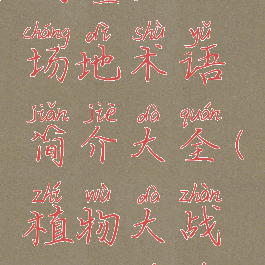 chǎng dì shù yǔ
场地术语
jiǎn jiè dà quán
简介大全(
zhí wù dà zhàn
植物大战